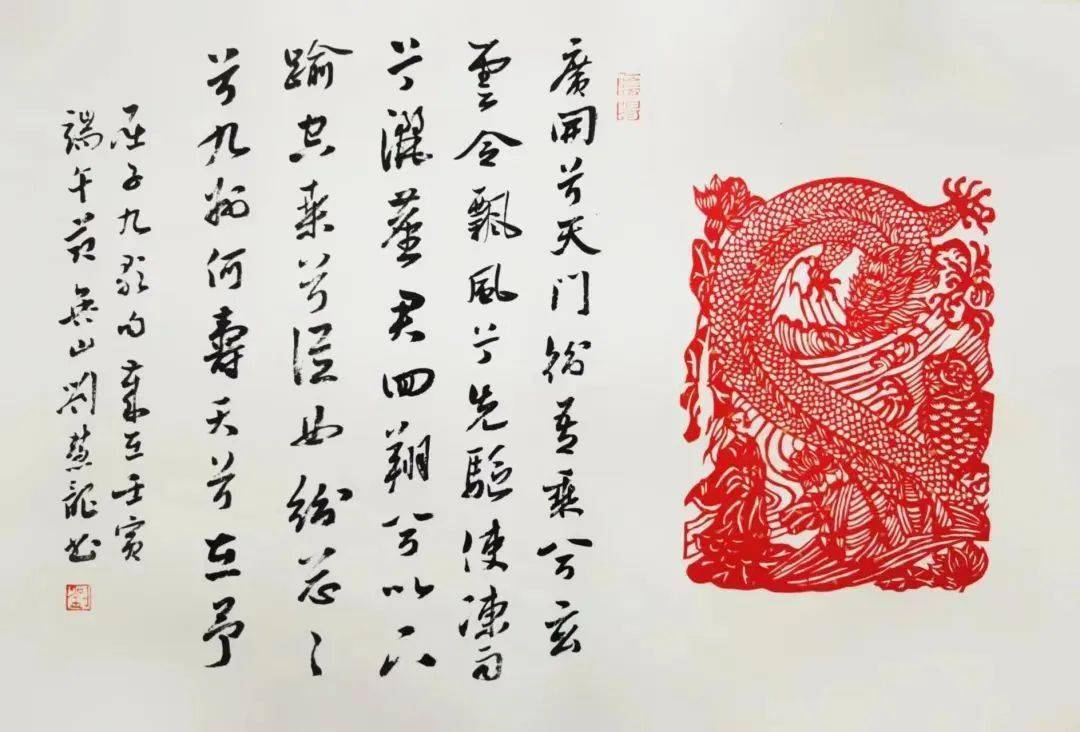 廣開兮天門紛吾乘兮玄
雲令飄風兮先驅使涷雨
兮灑塵君回翔兮以下
踰空桑兮從女紛總〻
兮九州何壽夭兮在予
屈子九歌句歲在壬寅
端午節山劉慧龍書